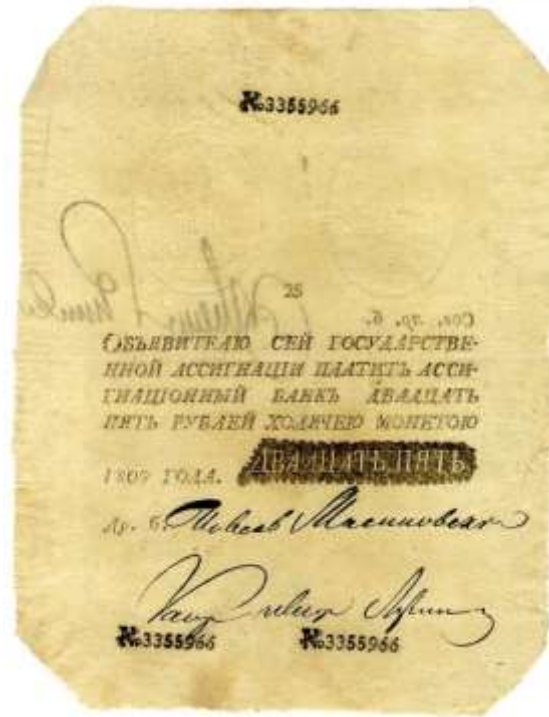 №3355966
25
ОБЪЯВИТЕЛЮ СЕЙ ГОСУДАРСТВЕ-
ННОЙ АССИГНАЦІИ ПЛАТИТЪ АССИ-
ГНАЦІОННЫЙ БАНКЪ ДВАДЦАТЬ
ПЯТЬ РУБЛЕЙ ХОДЯЧЕЮ МОНЕТОЮ
1809 ГОДА. ДВАДЦАТЬ ПЯТЬ
№3355966 №3355966